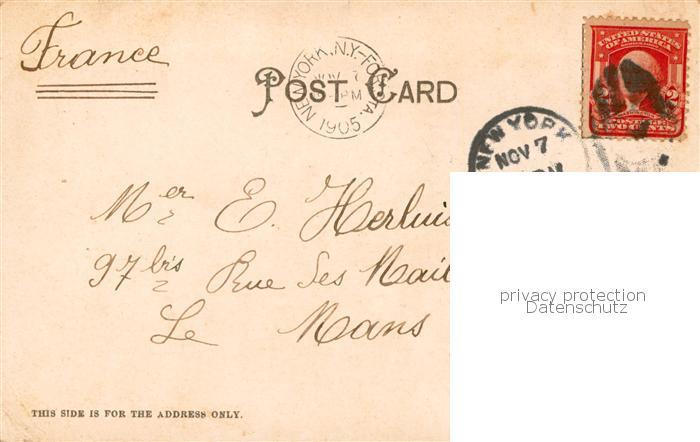 France
NEW YORK, N.Y.-FOR. STA.
NOV 7
PM
1905
POST CARD
UNITED STATES
OF AMERICA
2
TWO CENTS
NEW YORK
NOV 7
Mer E.
97 bis Rue des
Le Mans
privacy protection
Datenschutz
THIS SIDE IS FOR THE ADDRESS ONLY.